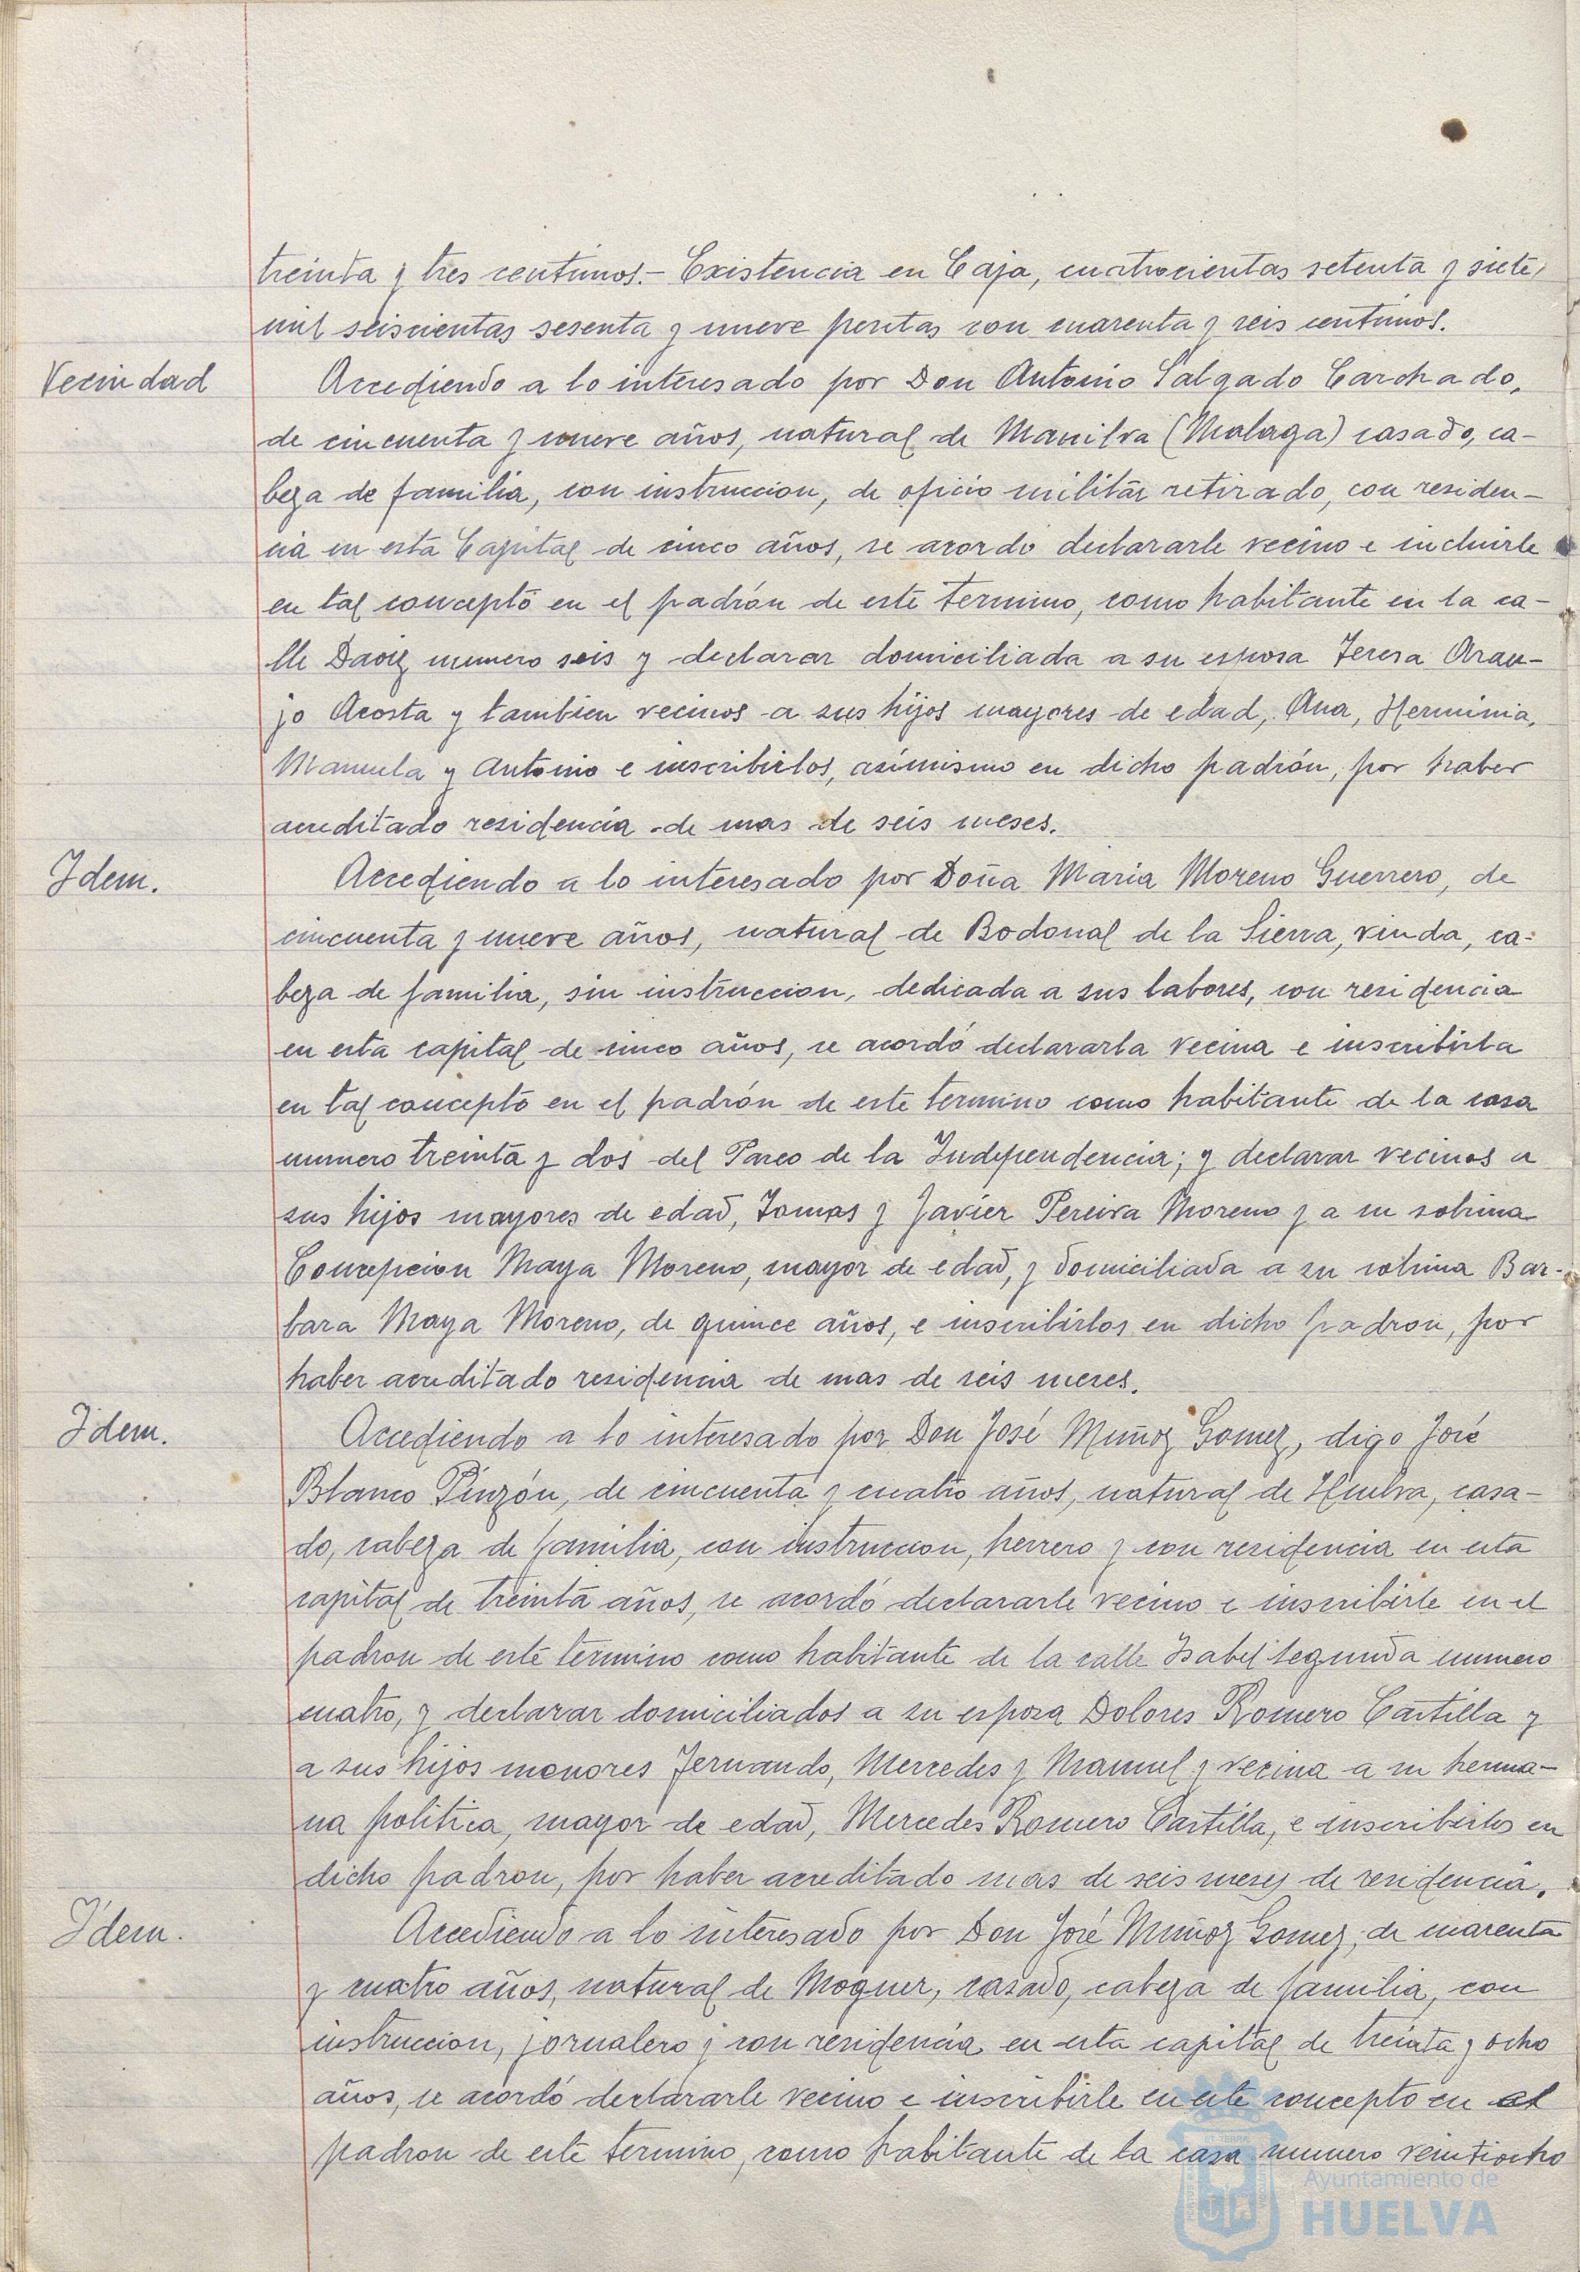 treinta y tres centimos.- Existencia en Caja, cuatrocientas setenta y siete
mil seiscientas sesenta y nueve pesetas con cuarenta y seis centimos.
Vecindad
Accediendo a lo interesado por Don Antonio Salgado Carchado,
de cincuenta y nueve años, natural de Manilva (Malaga) casado, ca-
beza de familia, con instruccion, de oficio militar retirado, con residen-
cia en esta Capital de cinco años, se acordo declararle vecino e incluirle
en tal concepto en el padrón de este termino, como habitante en la ca-
lle Daoiz numero seis y declarar domiciliada a su esposa Teresa Arau-
jo Acosta y tambien vecinos a sus hijos mayores de edad, Ana, Herminia,
Manuela y Antonio e inscribirlos, asímismo en dicho padrón, por haber
acreditado residencia de mas de seis meses.
Idem.
Accediendo a lo interesado por Doña Maria Moreno Guerrero, de
cincuenta y nueve años, natural de Bodonal de la Sierra, viuda, ca-
beza de familia, sin instruccion, dedicada a sus labores, con residencia
en esta capital de cinco años, se acordó declararla vecina e inscribirla
en tal concepto en el padrón de este termino como habitante de la casa
numero treinta y dos del Paseo de la Independencia; y declarar vecinos a
sus hijos mayores de edad, Tomas y Javier Pereira Moreno y a su sobrina
Concepcion Maya Moreno, mayor de edad, y domiciliada a su sobrina Bar-
bara Maya Moreno, de quince años, e inscribirlos en dicho padron, por
haber acreditado residencia de mas de seis meses.
Idem.
Accediendo a lo interesado por Don José Muñoz Gomez, digo José
Blanco Pinzón, de cincuenta y cuatro años, natural de Huelva, casa-
do, cabeza de familia, con instruccion, herrero y con residencia en esta
capital de treinta años, se acordó declararle vecino e inscribirle en el
padron de este termino como habitante de la calle Isabel segunda numero
cuatro, y declarar domiciliados a su esposa Dolores Romero Castilla y
a sus hijos menores Fernando, Mercedes y Manuel y vecina a su herma-
na politica, mayor de edad, Mercedes Romero Castilla, e inscribirlos en
dicho padron, por haber acreditado mas de seis meses de residencia.
Idem.
Accediendo a lo interesado por Don José Muñoz Gomez, de cuarenta
y cuatro años, natural de Moguer, casado, cabeza de familia, con
instruccion, jornalero y con residencia en esta capital de treinta y ocho
años, se acordó declararle vecino e inscribirle en este concepto en el
padron de este termino, como habitante de la casa numero veintiocho
Ayuntamiento de
HUELVA